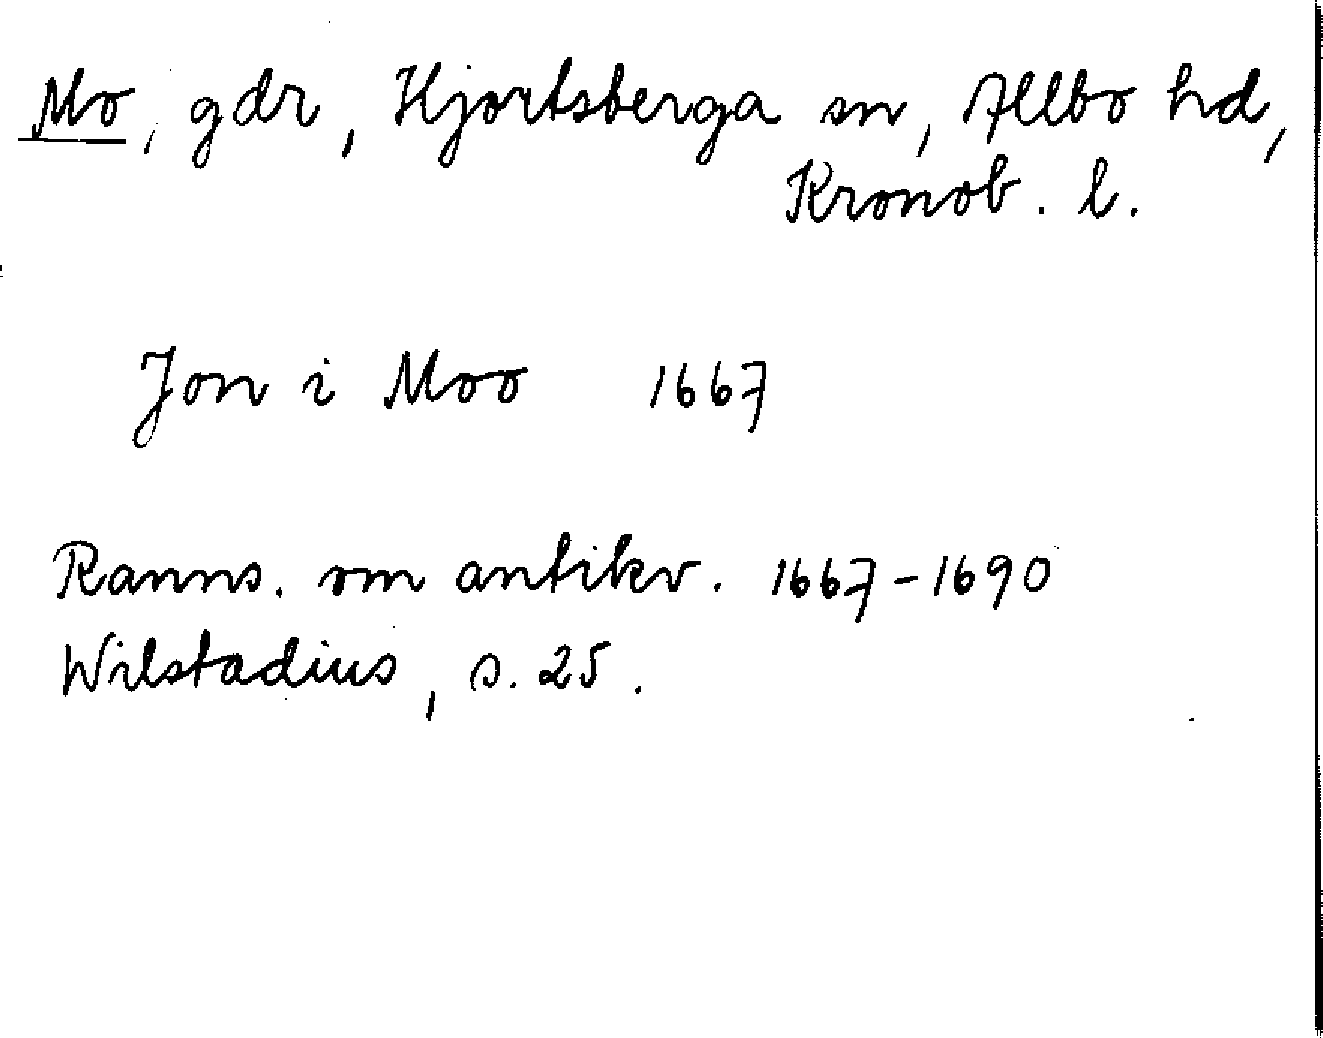 Mo, gdr, Hjortsberga sn, Allbo hd,
Kronob. l.
Jon i Moo 1667
Ranns. om antikv. 1667-1690
Wilstadius, s. 25.